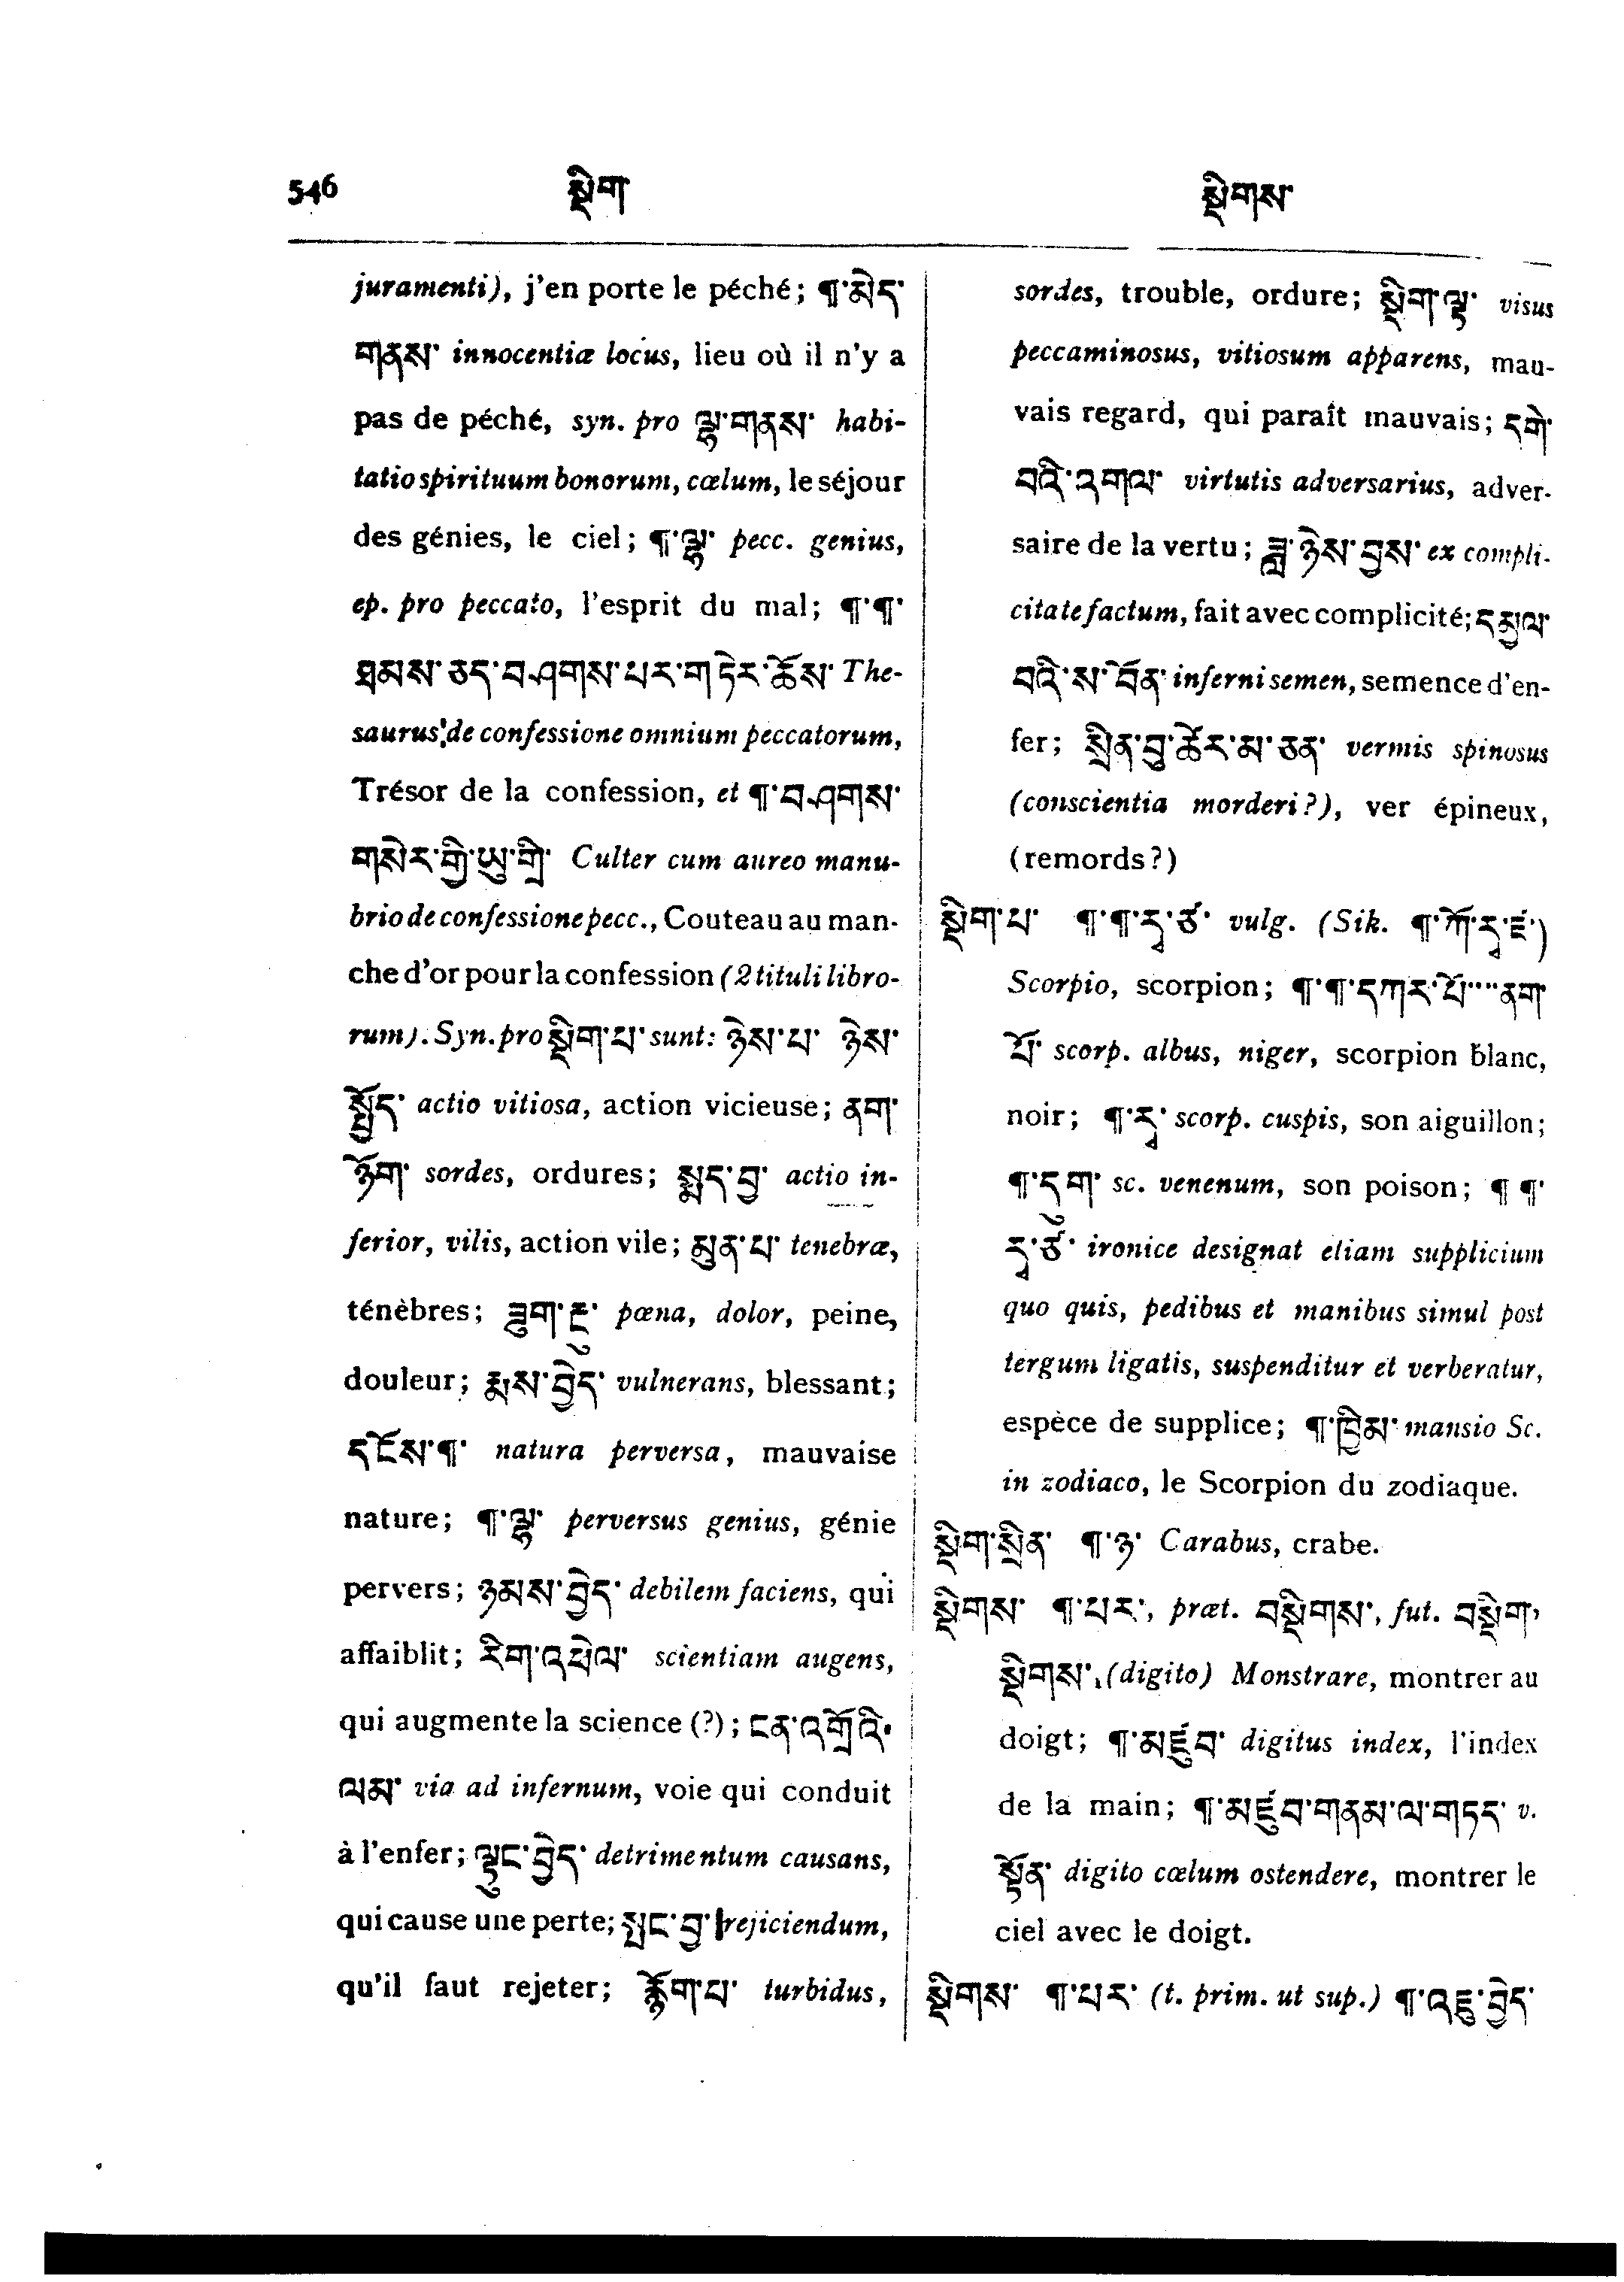 546 སྡིག སྡིགས
juramenti), j'en porte le péché; ¶་མེད་
གནས་ innocentiæ locus, lieu où il n'y a
pas de péché, syn. pro ལྷ་གནས་ habi-
tatio spirituum bonorum, cœlum, le séjour
des génies, le ciel; ¶་ལྷ་ pecc. genius,
ep. pro peccato, l'esprit du mal; ¶་¶་
ཐམས་ཅད་བཤགས་པར་གཏེར་ཆོས་ The-
saurus de confessione omnium peccatorum,
Trésor de la confession, et ¶་བཤགས་
གསེར་གྱི་ཡུ་གྲི་ Culter cum aureo manu-
brio de confessione pecc., Couteau au man-
che d'or pour la confession (2 tituli libro-
rum). Syn. pro སྡིག་པ་ sunt: ཉེས་པ་ ཉེས་
སྤྱོད་ actio vitiosa, action vicieuse; ནག་
ཉོག་ sordes, ordures; སྨད་བྱ་ actio in-
ferior, vilis, action vile; མུན་པ་ tenebræ,
ténèbres; ཟུག་རྔུ་ pœna, dolor, peine,
douleur; རྨས་བྱེད་ vulnerans, blessant;
དངོས་¶་ natura perversa, mauvaise
nature; ¶་ལྷ་ perversus genius, génie
pervers; ཉམས་བྱེད་ debilem faciens, qui
affaiblit; རིག་འཕེལ་ scientiam augens,
qui augmente la science (?); ངན་འགྲོའི་
ལམ་ via ad infernum, voie qui conduit
à l'enfer; ལྟུང་བྱེད་ detrimentum causans,
qui cause une perte; སྤང་བྱ་ rejiciendum,
qu'il faut rejeter; རྙོག་པ་ turbidus,
sordes, trouble, ordure; སྡིག་ལྟ་ visus
peccaminosus, vitiosum apparens, mau-
vais regard, qui paraît mauvais; དགེ་
བའི་འགལ་ virtutis adversarius, adver-
saire de la vertu; ཟླ་ཉེས་བྱས་ ex compli-
citate factum, fait avec complicité; དམྱལ་
བའི་ས་བོན་ inferni semen, semence d'en-
fer; སྲིན་བུ་ཚེར་མ་ཅན་ vermis spinosus
(conscientia morderi?), ver épineux,
(remords?)
སྡིག་པ་ ¶་¶་རྭ་ཙ་ vulg. (Sik. ¶་ཀོ་རྭ་ཛ་)
Scorpio, scorpion; ¶་¶་དཀར་པོ་་་་ནག་
པོ་ scorp. albus, niger, scorpion blanc,
noir; ¶་རྭ་ scorp. cuspis, son aiguillon;
¶་དུག་ sc. venenum, son poison; ¶ ¶་
རྭ་ཙ་ ironice designat etiam supplicium
quo quis, pedibus et manibus simul post
tergum ligatis, suspenditur et verberatur,
espèce de supplice; ¶་ཁྱིམ་ mansio Sc.
in zodiaco, le Scorpion du zodiaque.
སྡིག་སྲིན་ ¶་ཉ་ Carabus, crabe.
སྡིགས་ ¶་པར་, præt. བསྡིགས་, fut. བསྡིག་,
སྡིགས་, (digito) Monstrare, montrer au
doigt; ¶་མཛུབ་ digitus index, l'index
de la main; ¶་མཛུབ་གནམ་ལ་གཏད་ v.
སྟོན་ digito cœlum ostendere, montrer le
ciel avec le doigt.
སྡིགས་ ¶་པར་ (t. prim. ut sup.) ¶་འཇུ་བྱེད་